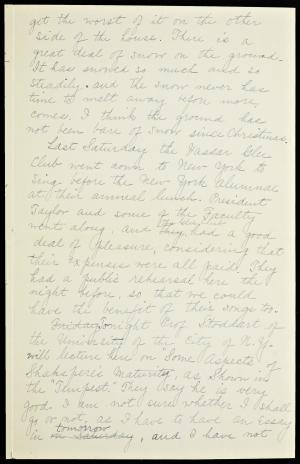 get the worst of it on the other
side of the house. There is a
great deal of snow on the ground.
It has snowed so much and so
steadily, and the snow never has
time to melt away before more
comes. I think the ground has
not been bare of snow since Christmas.
Last Saturday the Vassar Glee
Club went down to New York to
sing before the New York Alumnae
at their annual lunch. President
Taylor and some of the Faculty
went along, and they had a good
deal of pleasure, considering that
their expenses were all paid. They
had a public rehearsal here the
night before, so that we could
have the benefit of their songs too.
Friday night Prof. Stoddart of
the University of the City of N.Y.
will lecture here on "Some Aspects of
Shakspere's Maturity, as Shown in
the "Tempest." They say he is very
good. I am not sure whether I shall
go or not, as I have to have an Essay
tomorrow
in on Saturday, and I have not